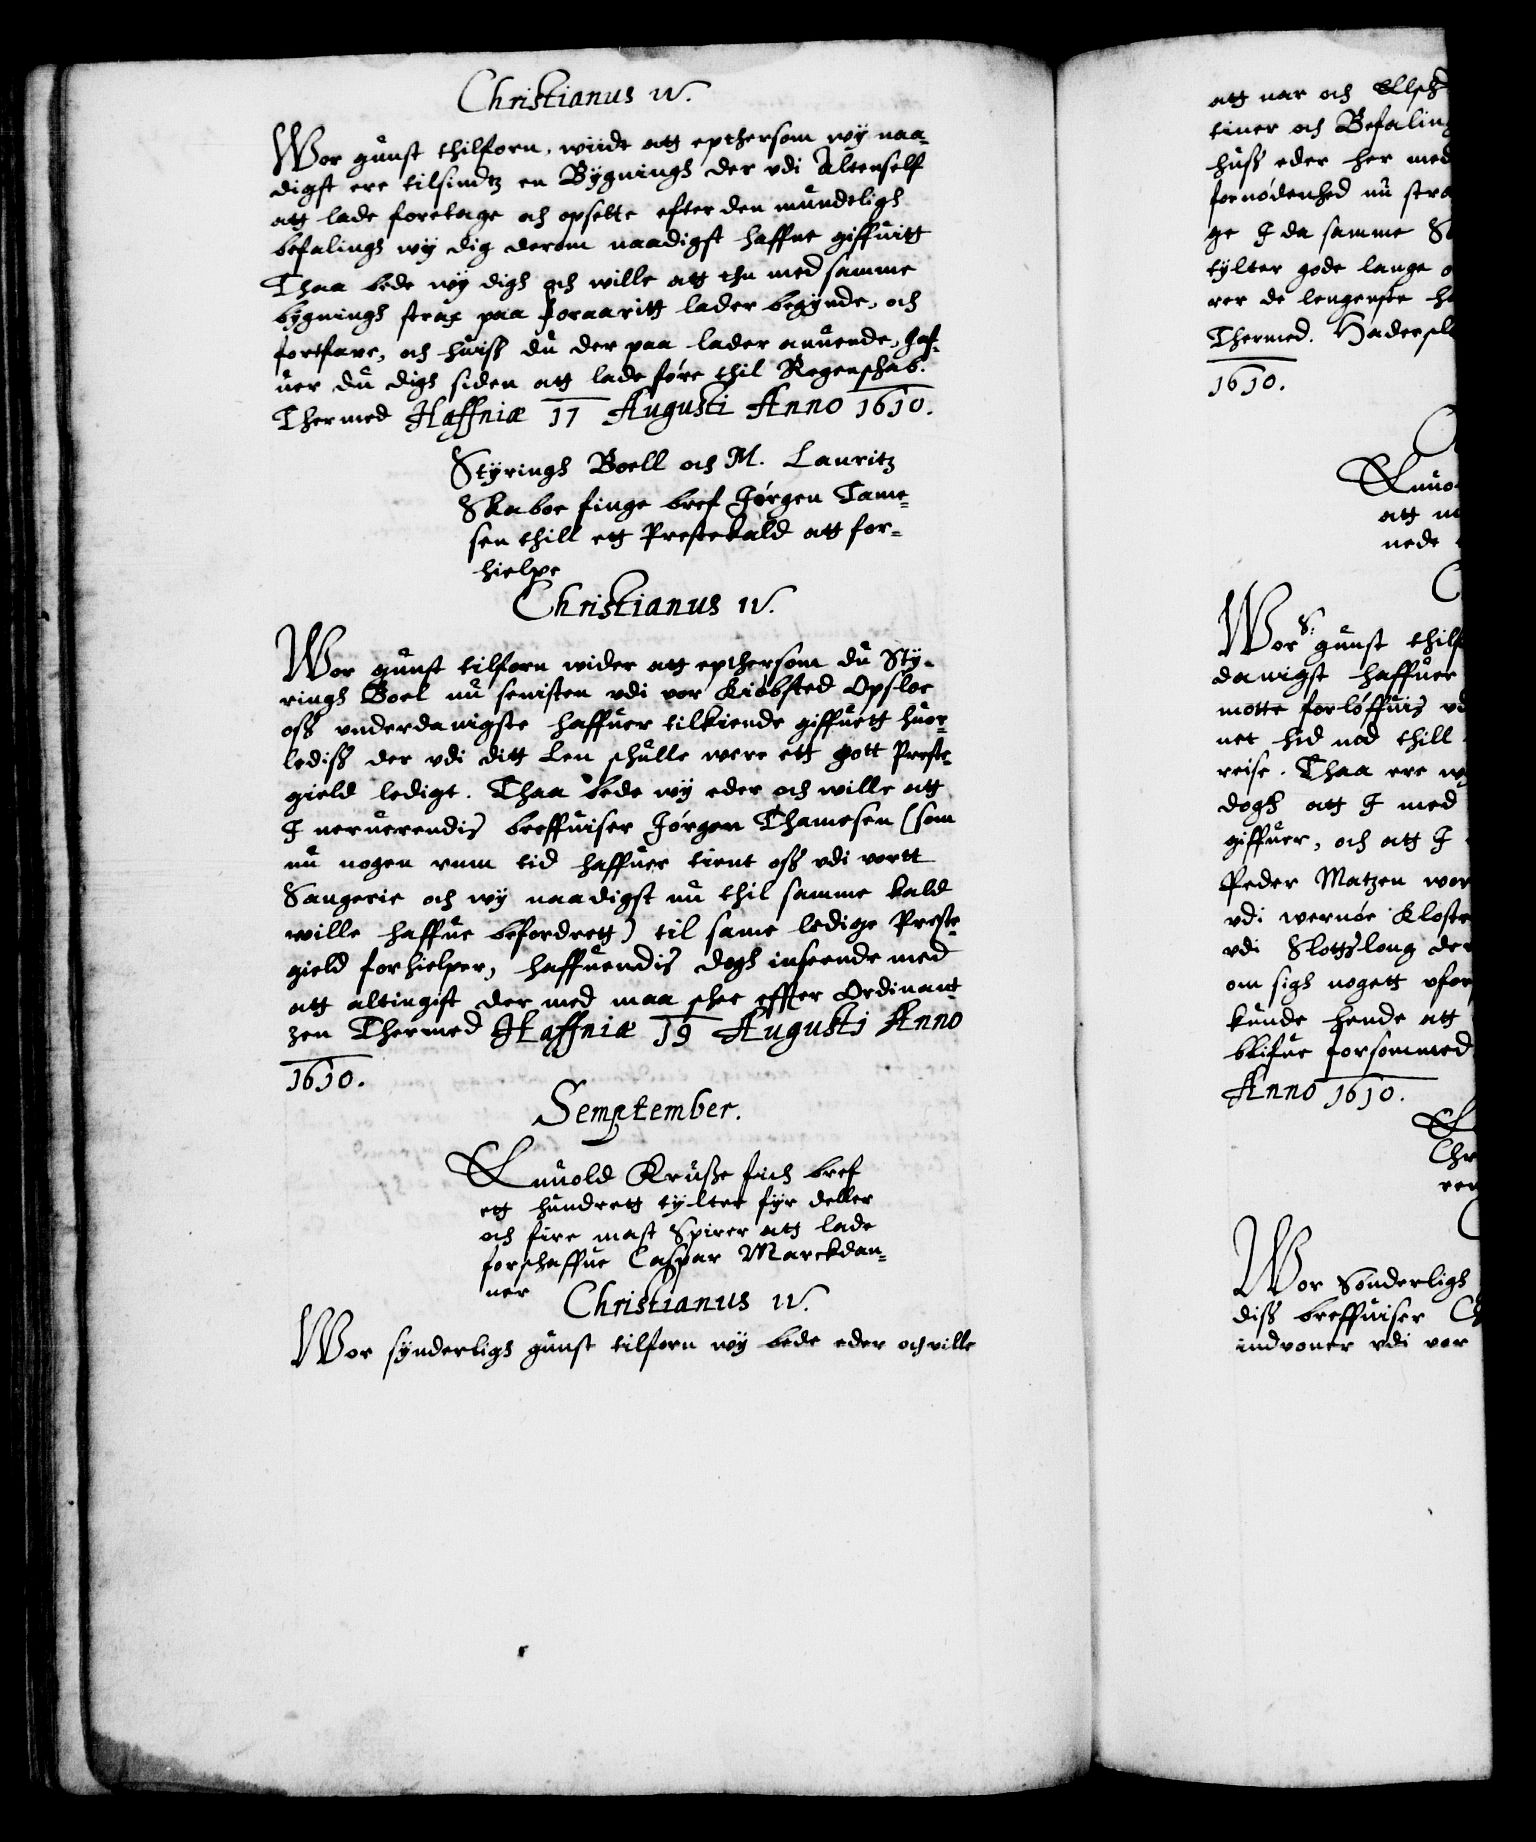 Christianus IV.
Wor gunst thilforn, wiidt att epthersom wy naa-
digst ere tilsindtz en Bygningh der vdi Altenself
att lade foretage och opsette efter den mundeligh
befalingh wy dig derom naadigst haffue giffuitt
Thaa bede wy digh och wille att thu med samme
bygningh strax paa foraaritt lader begynde, och
fortfare, och huiss du der paa lader anuende, haf-
uer du digh siden att lade føre thil Regenschab.
Thermed Haffniæ 17 Augusti Anno 1610.
Styringh Boell och M. Lauritz
Skaboe finge bref Jørgen Tame-
sen thill ett Prestekald att for-
hielpe
Christianus IV.
Wor gunst tilforn wider att epthersom du Sty-
ringh Boel nu senisten vdi vor Kiøbsted Opsloe
oss vnderdanigste haffuer tilkiende giffuett huor-
lediss der vdi ditt Len schulle were ett gott Preste-
gield ledigt. Thaa bede wy eder och wille att
I neruerendis breffuiser Jørgen Thamesen (som
nu nogen rum tid haffuer tient oss vdi vortt
Sangerie och wy naadigst nu thil samme kald
wille haffue befordrett) til same ledige Preste-
gield forhielper, haffuendis dogh inseende med
att altingist der med maa schee effter Ordinant-
zen Thermed Haffniæ 19 Augusti Anno
1610.
Semptember.
Enuold Krusse fich bref
ett hundrett tylter fyr deller
och fire mast Spirer att lade
forschaffue Caspar Marckdan-
ner
Christianus IV.
Wor synderligh gunst tilforn wy bede eder och wille
att nar och
tiner och Befaling
huss eder her med
fornødenhed nu stra
ge I da samme
tylter gode lange
rer de lengenste
Thermed. Hadersl
1610.
Enuo
att
nede
Wor S: gunst thilf
danigst haffuer
motte forløffuis vd
net hid ned thill
reise. Thaa ere wy
dogh att I med
giffuer, och att I
Peder Matzen wor
vdi wernøe Kloste
vdi Slotzlong der
om sigh nogett vfor
kunde hende att
blifue forsommed
Anno 1610.
Chr
ren
Wor Sønderligh
diss breffuiser
indvoner vdi vor